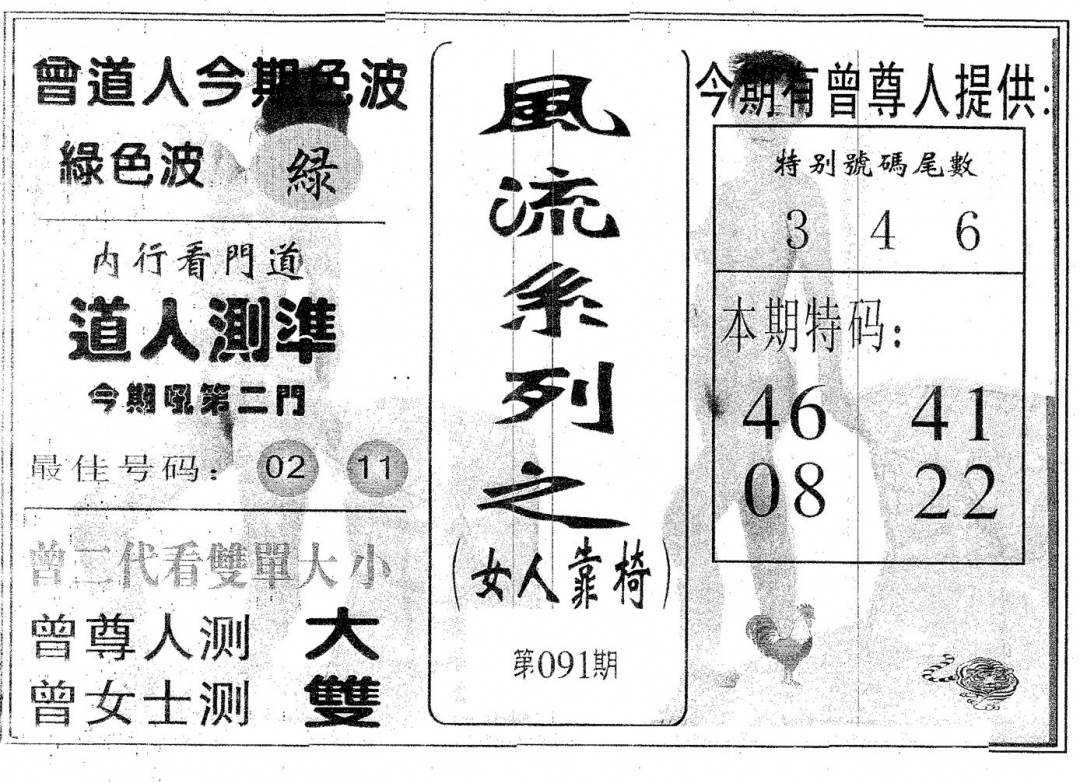 曾道人今期色波
綠色波 緑
内行看門道
道人測準
今期吼第二門
最佳号码: 02 11
曾二代看雙單大小
曾尊人测 大
曾女士测 雙
風流系列之
(女人靠椅)
第091期
今期有曾尊人提供:
特别號碼尾數
3 4 6
本期特码:
46 41
08 22